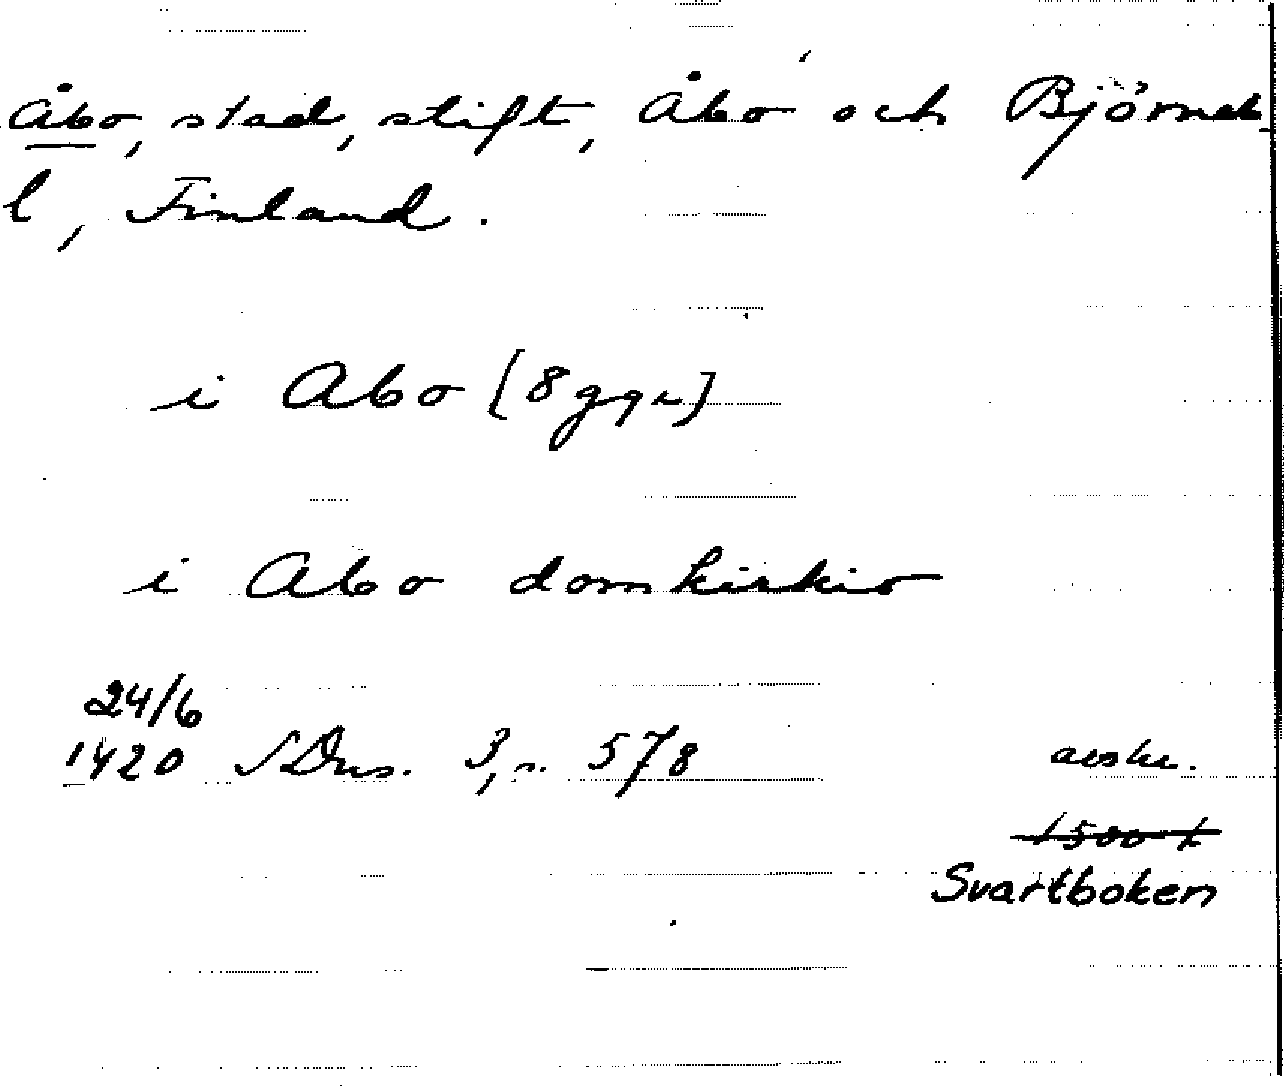 Åbo, stad, stift, Åbo och Björneb
l, Finland.
i Abo [8 ggr]
i Abo domkirkio
24/6
1420 SDns. 3, s. 578 avskr.
1500-t
Svartboken